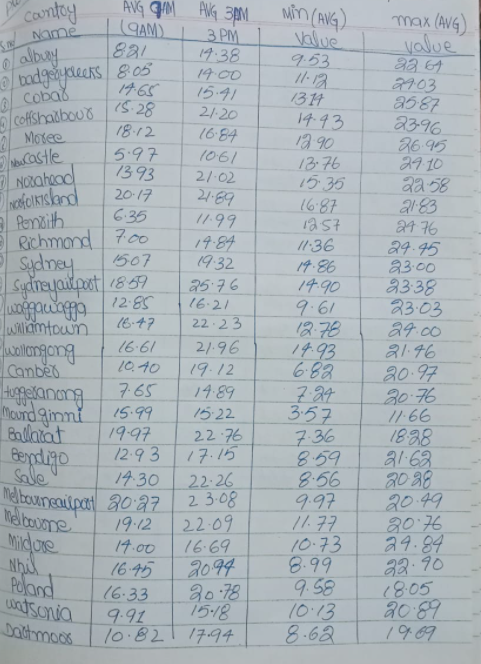 country AVG 9AM AVG 3PM Min (AVG) max (AVG)
Name (9AM) 3 PM Value value
albury 8.21 14.38 9.53 22.64
badgerycreeks 8.05 14.00 11.12 24.03
Cobar 14.65 15.41 13.14 25.87
coffsharbour 15.28 21.20 14.43 23.96
Moree 18.12 16.84 12.90 26.95
Newcastle 5.97 10.61 13.76 24.10
Norahead 13.93 21.02 15.35 22.58
norfolkisland 20.17 21.89 16.87 21.83
Penrith 6.35 11.99 12.57 24.76
Richmond 7.00 14.84 11.36 24.45
Sydney 15.07 19.32 14.86 23.00
Sydneyairport 18.59 25.76 14.90 23.38
waggawagga 12.85 16.21 9.61 23.03
williamtown 16.47 22.23 12.78 24.00
wollongong 16.61 21.96 14.93 21.46
Canber 10.40 19.12 6.82 20.97
tuggeranong 7.65 14.89 7.24 20.76
mound ginni 15.99 15.22 3.57 11.66
Ballarat 19.97 22.76 7.36 18.28
Bendigo 12.93 17.15 8.59 21.62
Sale 14.30 22.26 8.56 20.28
Melbourneairport 20.27 23.08 9.97 20.49
Melbourne 19.12 22.09 11.77 20.76
Mildure 14.00 16.69 10.73 24.84
Nhil 16.45 20.94 8.99 22.90
Poland 16.33 20.78 9.58 18.05
watsonia 9.91 15.18 10.13 20.89
Dartmoor 10.82 17.94 8.62 19.09